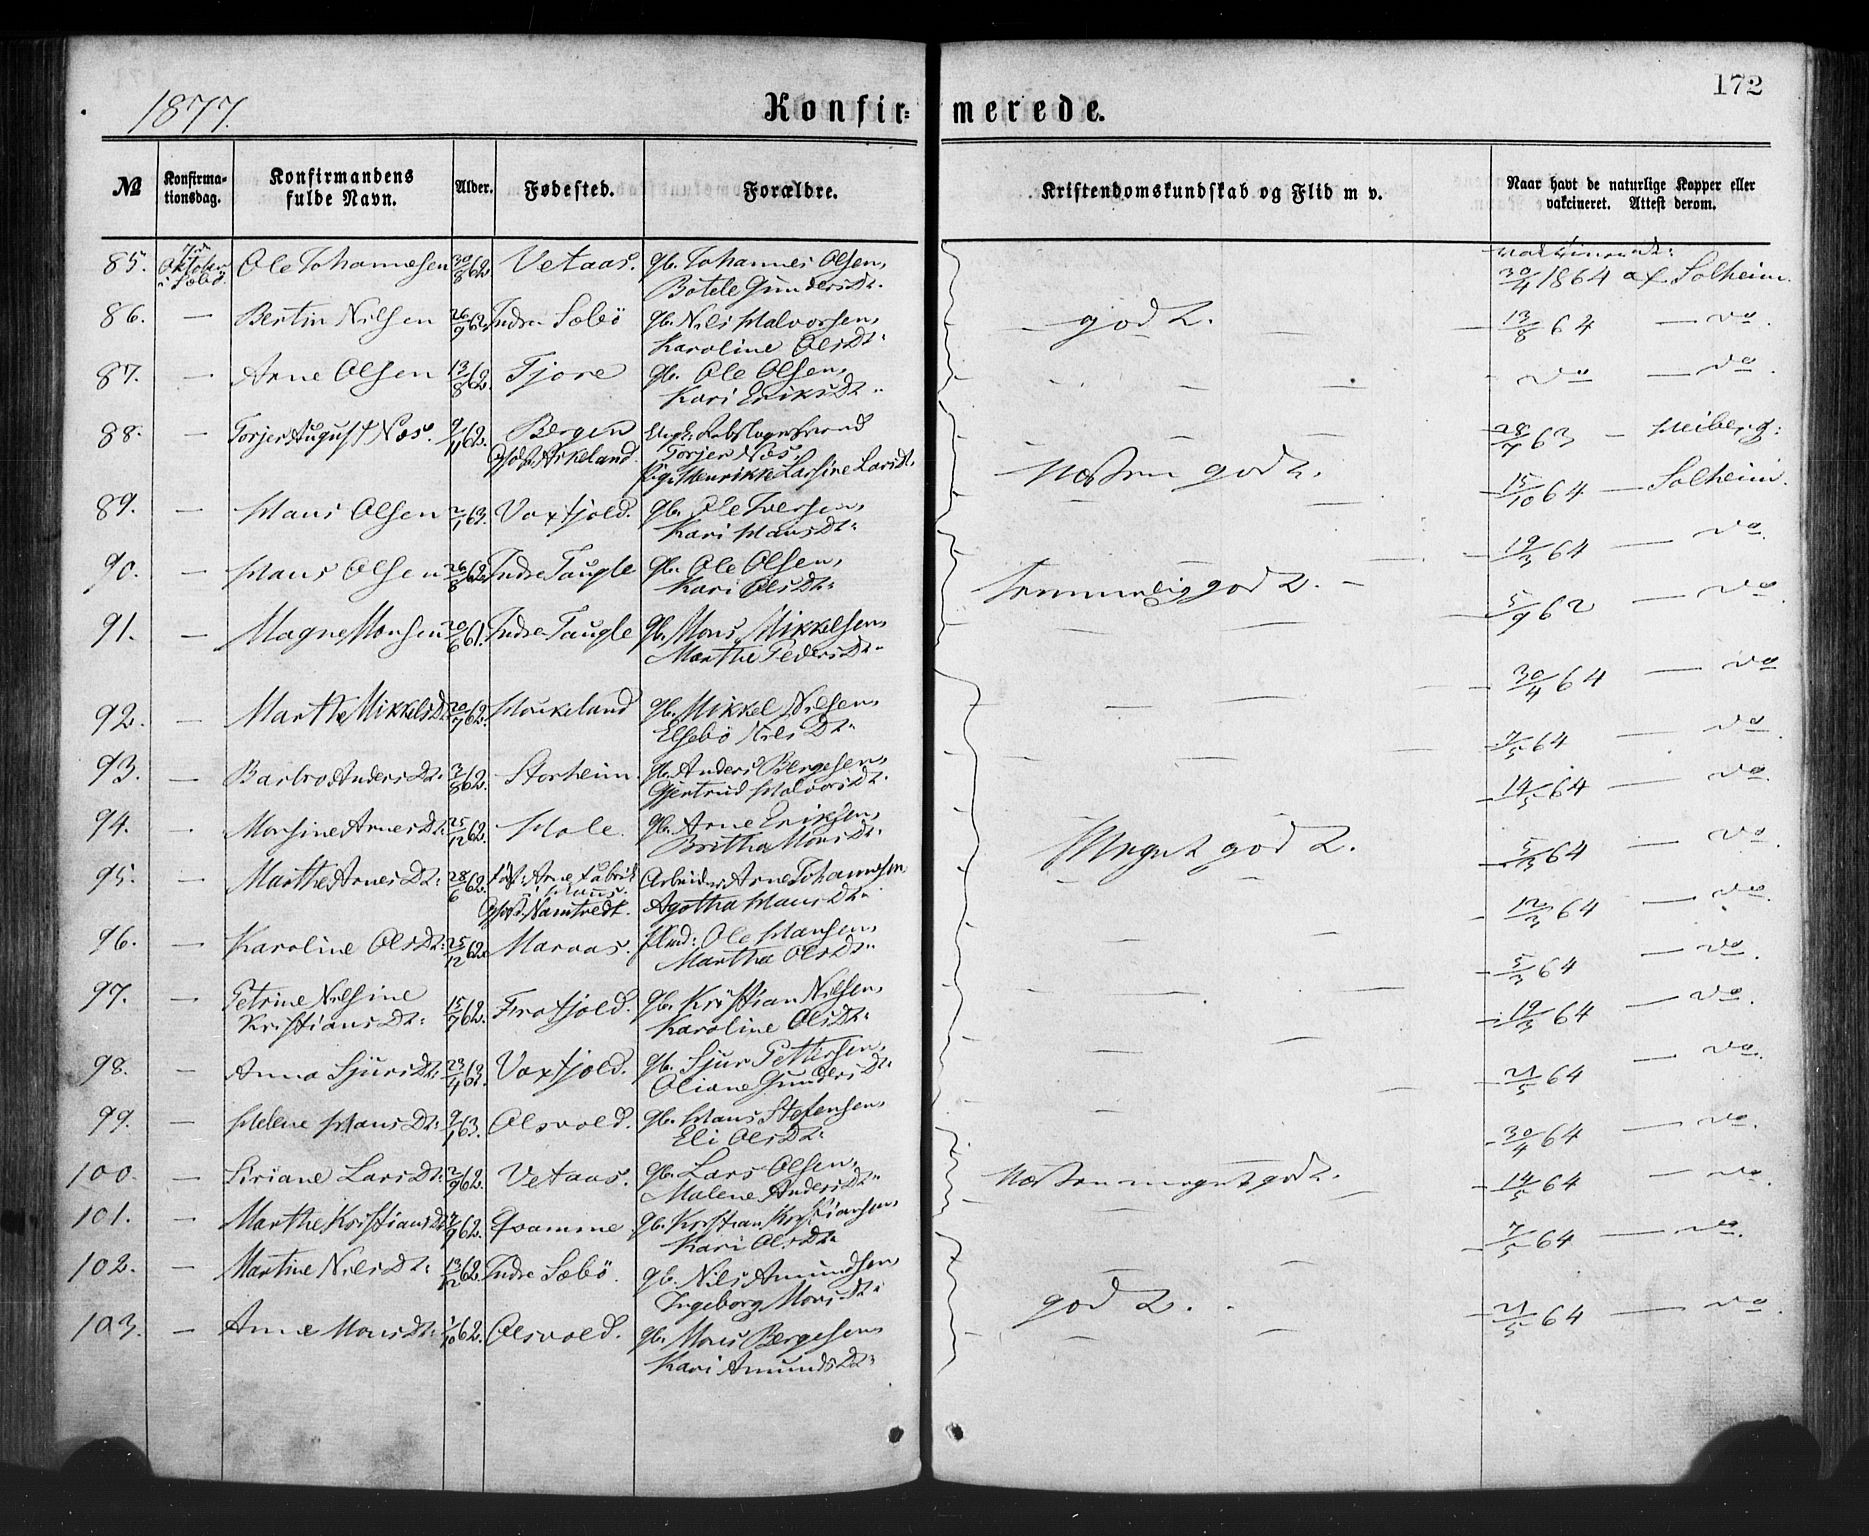 1877.
Konfir=
merede.
172
№
Konfirma-
tionsdag.
Konfirmandens
fulde Navn.
Alder.
Fødested.
Forældre.
Kristendomskundskab og Flid m v.
Naar havt de naturlige Kopper eller
vakcineret. Attest derom.
85. Oktober Ole Johannesen 30/8 62. Vetaas. gb. Johannes Olsen,
Botele Gundersdt.
30/4 1864 af Solheim.
86. — Bertin Nilsen 26/9 62. Indre Sæbö gb. Nils Halvorsen,
Karoline Olsdt.
god 2. 13/8 64 — do.
87. — Arne Olsen 13/8 62. Fjore gb. Ole Olsen,
Kari Eriksdt.
do — do.
88. — Torjer August Næs. 9/11 62. Bergen
Askeland
Torjer Næs.
Pige Henrikke Larsine Larsdt.
63 — Heiberg.
Næsten god 2.
89. — Hans Olsen 2/1 63. Voxfjold. gb. Ole Iversen,
Kari Hansdt.
15/10 64 — Solheim.
90. — Hans Olsen 26/8 62. Indre Taugle gb. Ole Olsen,
Kari Olsdt.
19/3 64 — do.
temmelig god 2. —
91. — Magne Monsen 20/6 61. Indre Taugle gb. Mons Mikkelsen,
Marthe Pedersdt.
5/9 62 — do
92. — Marthe Mikkelsdt. 20/7 62. Houkeland gb. Mikkel Nilsen,
Elsebö Nilsdt.
30/4 64 — do
93. — Barbro Andersdt. 3/8 62. Storheim. gb. Anders Bergesen,
Gjertrud Halvorsdt.
7/5 64 — do.
94. Monsine Arnesdt. 25/12 62. Hole. gb. Arne Eriksen,
Britha Monsdt.
14/5 64 — do.
Meget god 2.
95. — Marthe Arnesdt. 28/6 62. Arne Fabrik
Hans
Arbeider Arne Johannesen,
Agatha Hansdt.
5/3 64 — do.
96. — Karoline Olsdt. 25/12 62. Maraas. Ole Hansen,
Martha Olsdt.
12/3 64 — do.
97. — Petrine Nilsine
Kristiansdt. 15/7 62. Frotjold. gb. Kristian Nilsen,
Karoline Olsdt.
5/3 64 — do.
98. — Anna Sjursdt. 23/4 62. Voxfjold. gb. Sjur Pettersen,
Oliane Gundersdt.
19/3 64 — do.
99. — Helene Hansdt. 9/1 63. Alsvold. gb. Hans Stefensen,
Eli Olsdt.
21/5 64 — do.
100. — Siriane Larsdt. 2/9 62. Vetaas. gb. Lars Olsen,
Malene Andersdt.
30/4 64 — do.
Næsten meget god 2.
101. — Marthe Kristiansdt. 62. Qvamme gb. Kristian Kristiansen,
Kari Olsdt.
14/5 64 — do.
102. — Martine Nilsdt. 13/12 62. Indre Sæbö. gb. Nils Amundsen,
Ingeborg Monsdt.
7/5 64 — do.
103. — Anne Monsdt. 1/10 62. Alsvold. gb. Mons Bergesen,
Kari Amundsdt.
god 2. 21/5 64 — do.